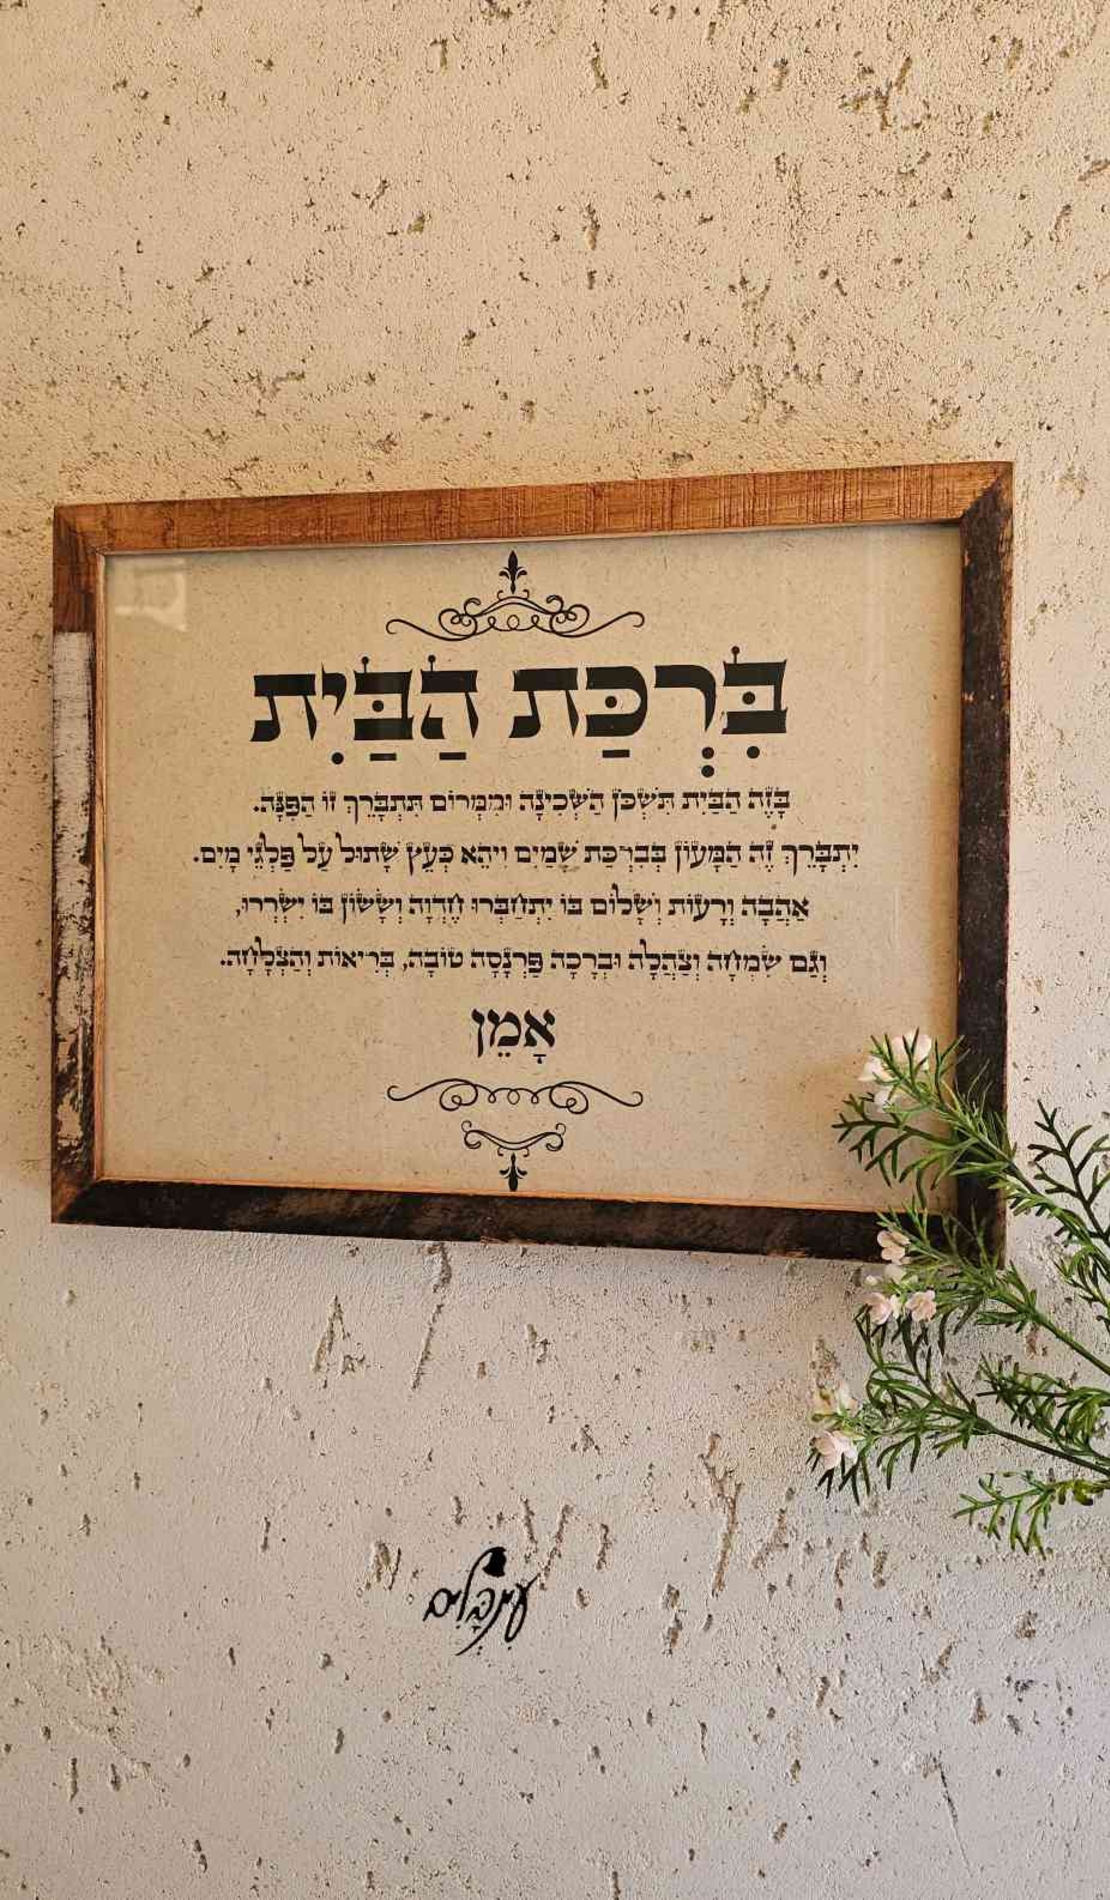 בִּרְכַּת הַבַּיִת
בָּזֶה הַבַּיִת תִּשְׁכֹּן הַשְּׁכִינָה וּמִמְּרוֹם תִּתְבָּרֵךְ זוֹ הַפִּנָּה.
יִתְבָּרֵךְ זֶה הַמָּעוֹן בְּבִרְכַּת שָׁמַיִם וִיהֵא כְּעֵץ שָׁתוּל עַל פַּלְגֵי מָיִם.
אַהֲבָה וְרֵעוּת וְשָׁלוֹם בּוֹ יִתְחַבְּרוּ חֶדְוָה וְשָׂשׂוֹן בּוֹ יִשְׂרְרוּ,
וְגַם שִׂמְחָה וְצָהֳלָה וּבְרָכָה פַּרְנָסָה טוֹבָה, בְּרִיאוּת וְהַצְלָחָה.
אָמֵן